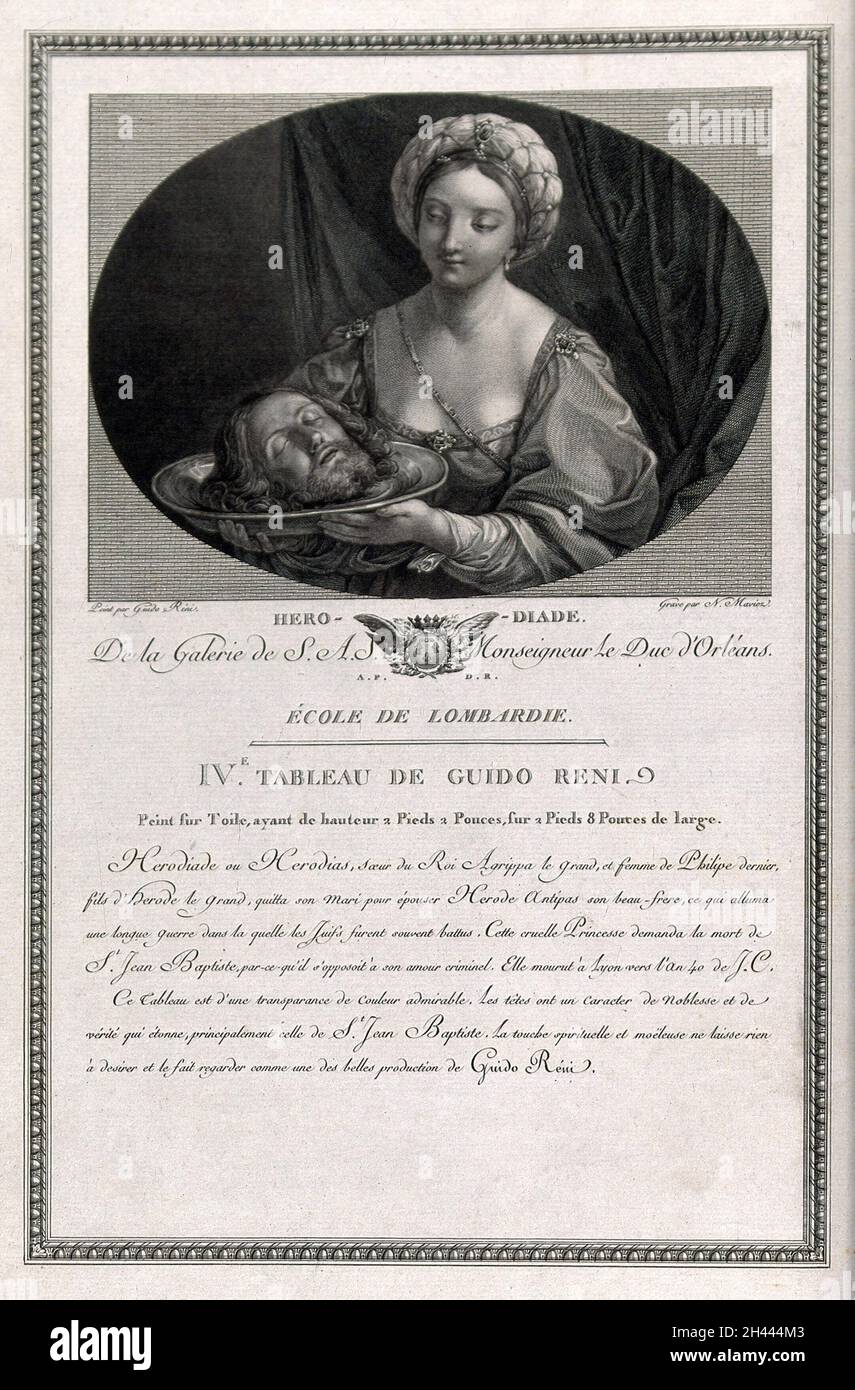 Peint par Guido Réni.
Gravé par N. Maviez.
HERO- -DIADE.
De la Galerie de S. A. S. Monseigneur Le Duc d'Orléans.
A. P. D. R.
ÉCOLE DE LOMBARDIE.
IV.E TABLEAU DE GUIDO RENI.
Peint sur Toile, ayant de hauteur 2 Pieds 2 Pouces, sur 2 Pieds 8 Pouces de large.
Herodiade ou Herodias, sœur du Roi Agrippa le Grand, et femme de Philipe dernier,
fils d'Herode le Grand, quitta son Mari pour épouser Herode Antipas son beau-frere, ce qui alluma
une longue guerre dans la quelle les Juifs furent souvent battus. Cette cruelle Princesse demanda la mort de
St. Jean Baptiste, par-ce-qu'il s'opposoit à son amour criminel. Elle mourut à Lyon vers l'An 40 de J. C.
Ce Tableau est d'une transparance de couleur admirable. Les têtes ont un caracter de Noblesse et de
vérité qui étonne, principalement celle de St. Jean Baptiste. La touche spirituelle et moëleuse ne laisse rien
à desirer et le fait regarder comme une des belles production de Guido Réni.
alamy
Image ID: 2H444M3
www.alamy.com